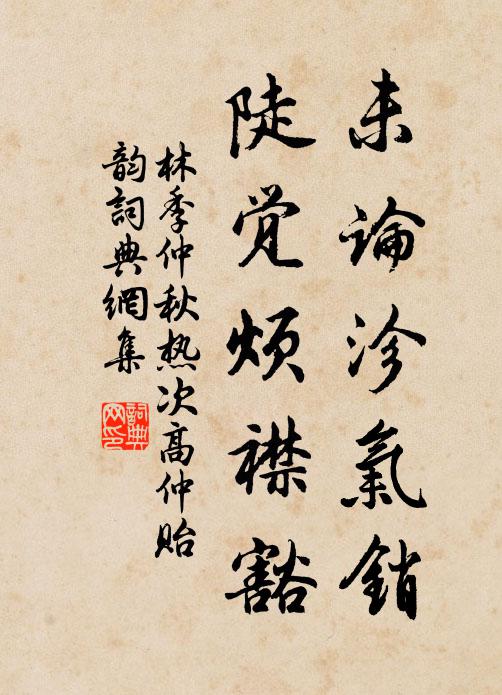 未論沴氣銷
陡觉烦襟豁
林季仲秋热次高仲貽
韵詞典網集
詞典
网印